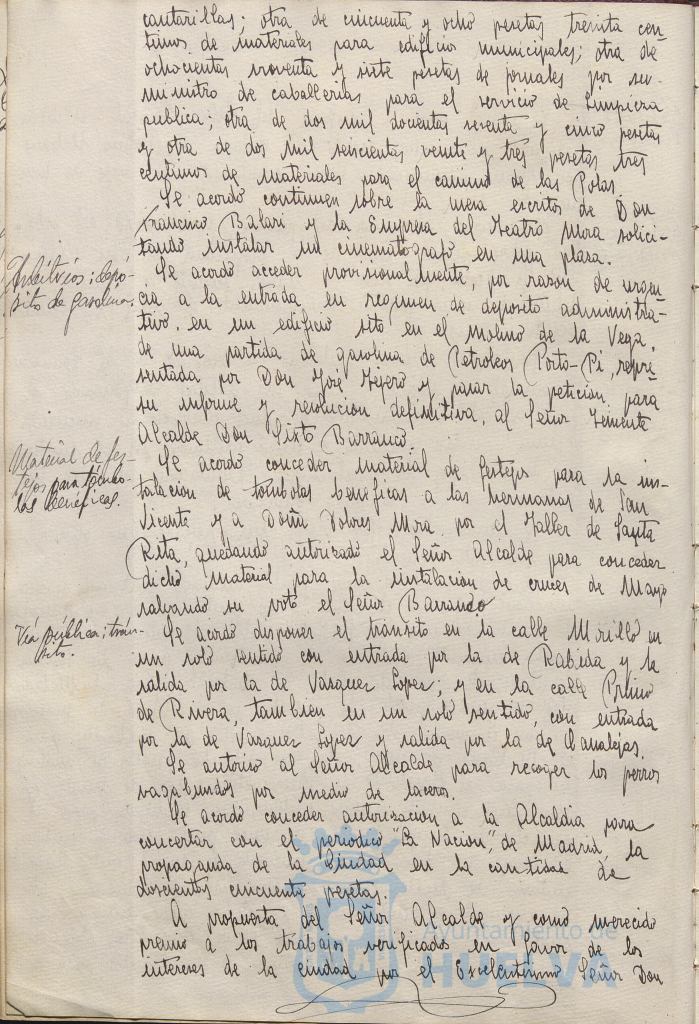 cantarillas; otra de cincuenta y ocho pesetas treinta cen-
timos de materiales para edificios municipales; otra de
ochocientas noventa y siete pesetas de jornales por su-
ministro de caballerias para el servicio de Limpieza
publica; otra de dos mil docientas sesenta y cinco pesetas
y otra de dos mil seiscientas veinte y tres pesetas tres
centimos de materiales para el camino de las Polas.
Se acordó continuen sobre la mesa escritos de Don
Francisco Balari y la Empresa del Teatro Mora solici-
tando instalar un cinematografo en una plaza.
Arbitrios; depó-
sito de gasolina.
Se acordó acceder provisionalmente, por razon de urgen-
cia a la entrada en regimen de deposito administra-
tivo, en un edificio sito en el Molino de la Vega,
de una partida de gasolina de Petroleos Porto-Pi, repre-
sentada por Don José Tejero y pasar la peticion, para
su informe y resolucion definitiva, al Señor Teniente
Alcalde Don Sixto Barranco.
Material de fes-
tejos para tómbo-
las benéficas.
Se acordó conceder material de festejos para la ins-
talacion de tombolas beneficas a las hermanas de San
Vicente y a Doña Dolores Mora por el Taller de Santa
Rita, quedando autorizado el Señor Alcalde para conceder
dicho material para la instalacion de cruces de Mayo
salvando su voto el Señor Barranco
Vía pública; trán-
sito.
Se acordó disponer el tránsito en la calle Murillo en
un solo sentido con entrada por la de Rabida y la
salida por la de Vasquez Lopez; y en la calle Primo
de Rivera, tambien en un solo sentido, con entrada
por la de Vasquez Lopez y salida por la de Canalejas.
Se autorizó al Señor Alcalde para recoger los perros
vagabundos por medio de laceros.
Se acordó conceder autorizacion a la Alcaldia para
concertar con el periodico "La Nacion", de Madrid, la
propaganda de la Ciudad en la cantidad de
doscientas cincuenta pesetas.
A propuesta del Señor Alcalde y como merecido
premio a los trabajos verificados en favor de los
intereses de la ciudad por el Excelentisimo Señor Don
Ayuntamiento de
HUELVA